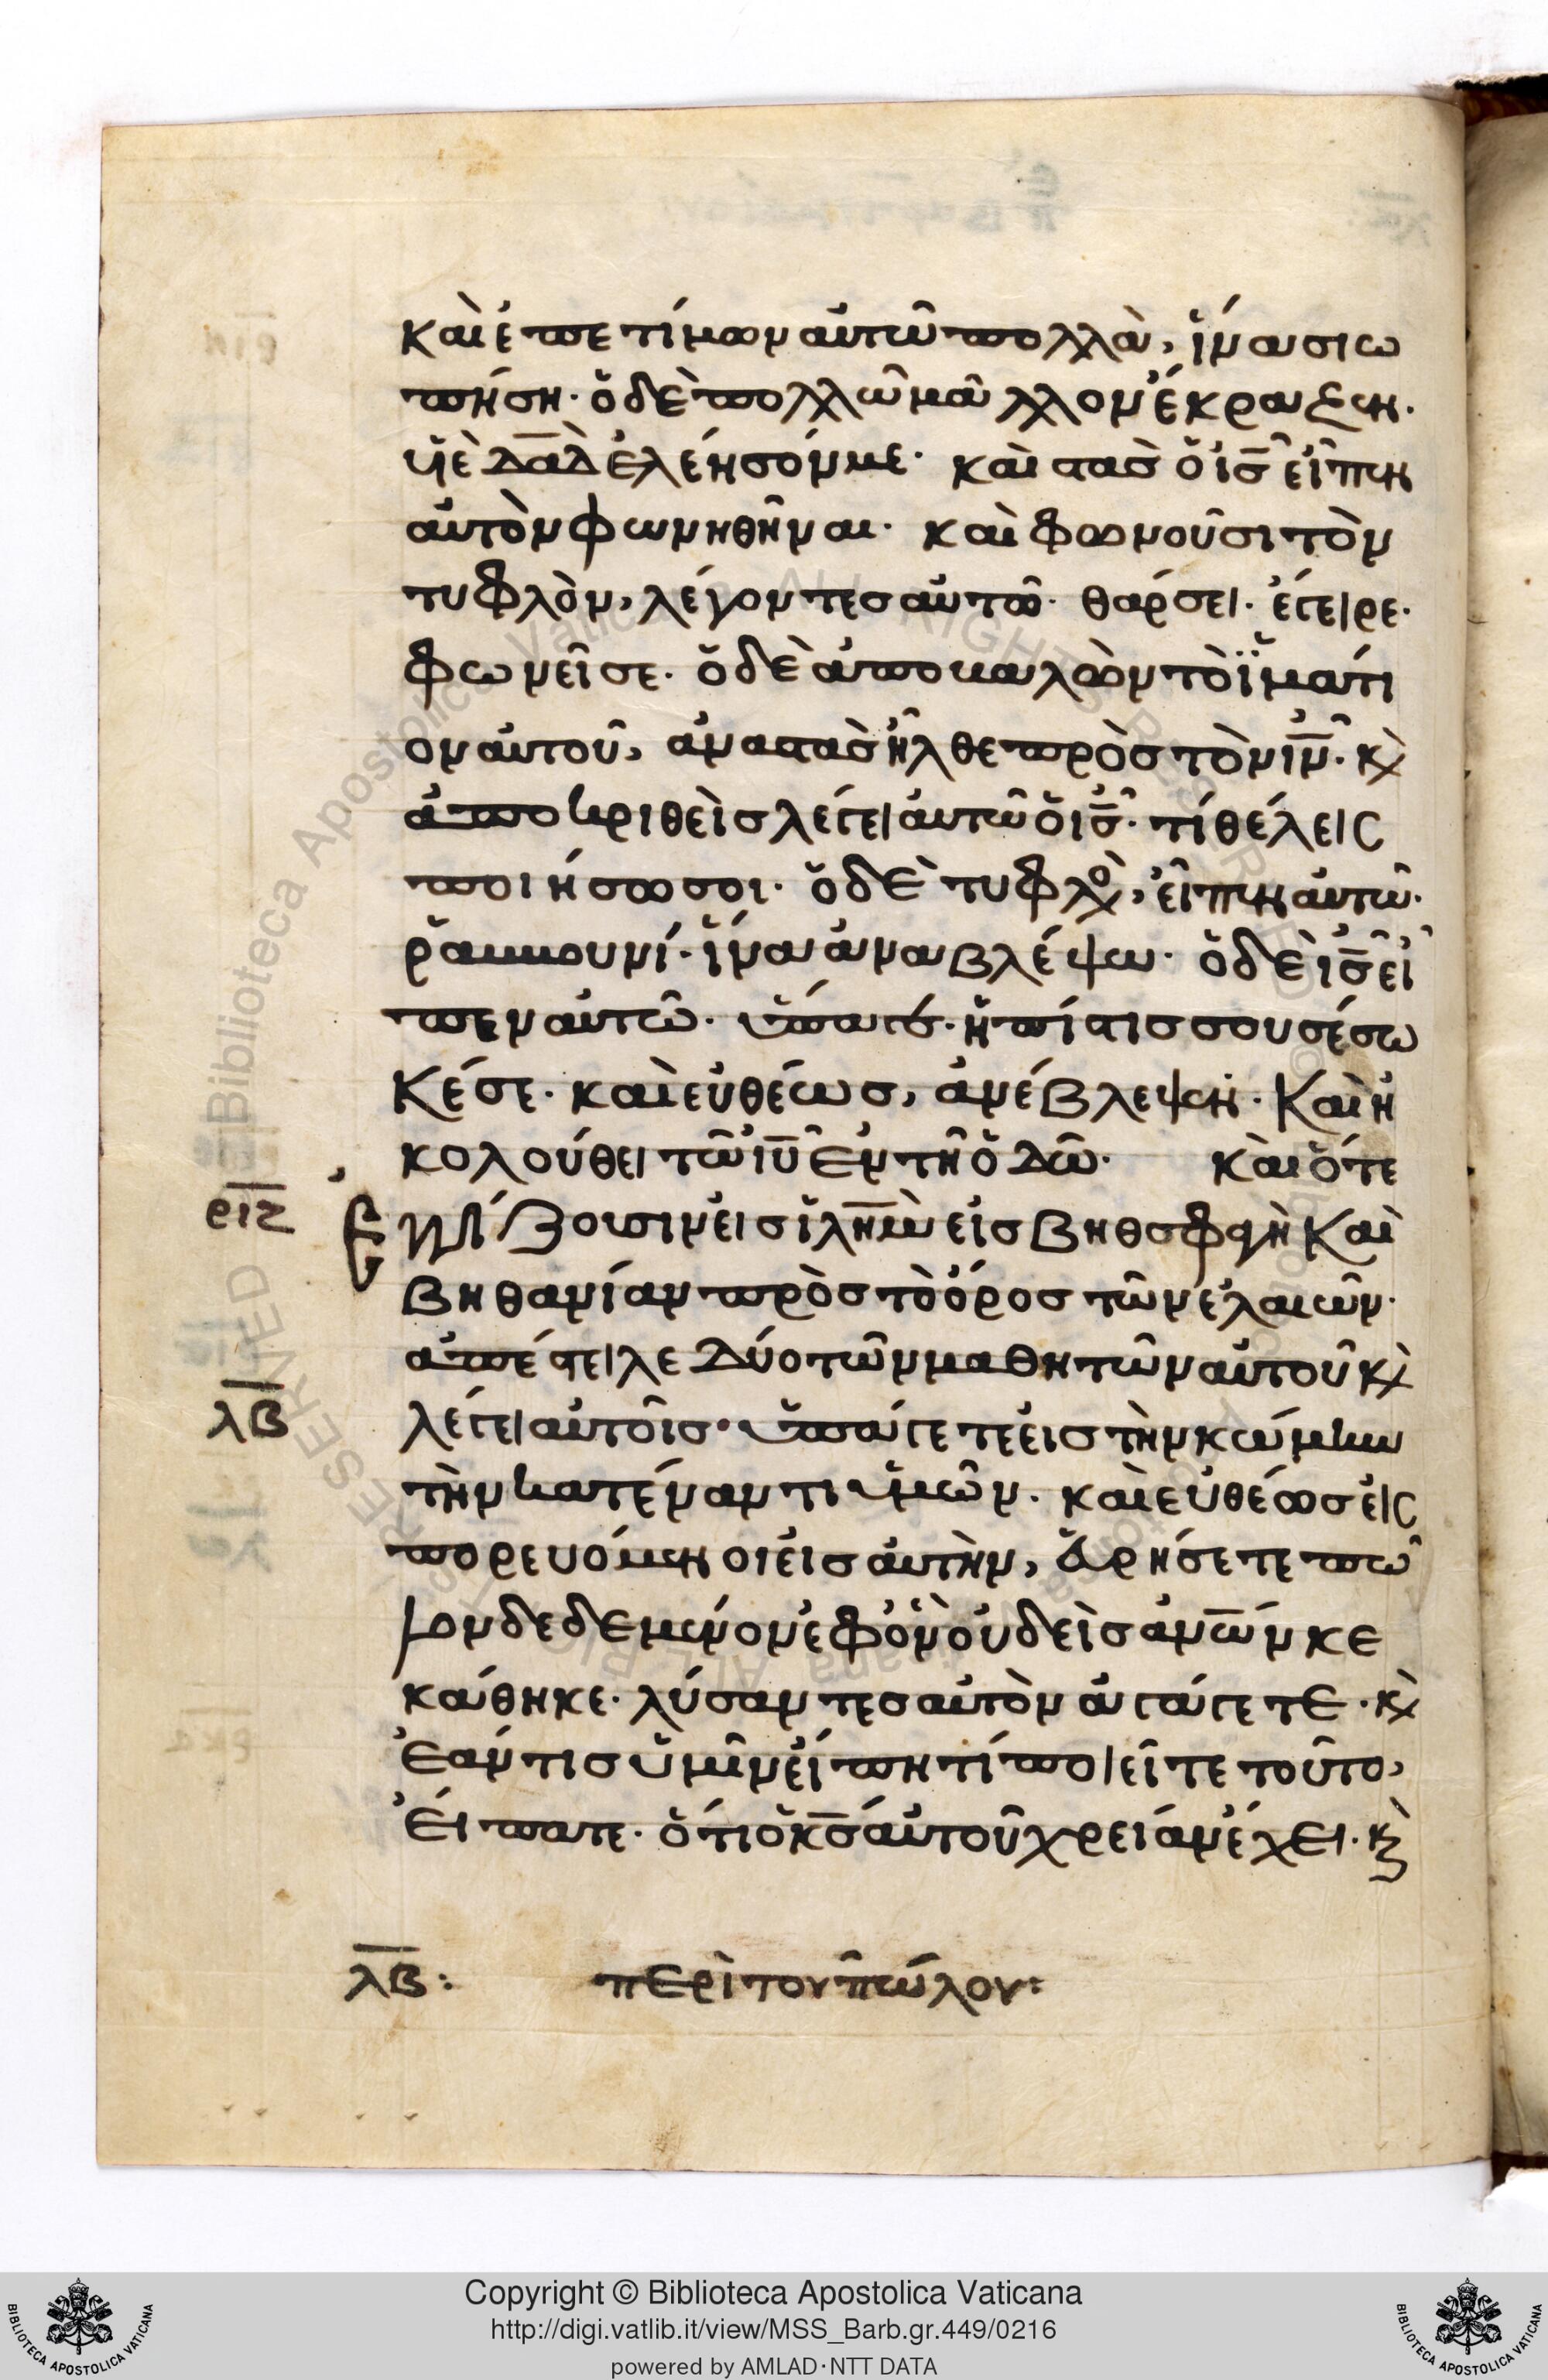 καὶ ἐπετίμων αὐτῶ πολλὰ, ἵνα σιω
πήση· ὁ δὲ πολλῶ μᾶλλον ἔκραζεν·
υἱὲ δαδ ἐλέησόν με· καὶ στὰς ὁ ις εἶπεν
αὐτὸν φωνηθῆναι· καὶ φωνοῦσι τὸν
τυφλὸν, λέγοντες αὐτῶ· θάρσει· ἔγειρε·
φωνεῖ σε· ὁ δὲ ἀποβαλὼν τὸ ἱμάτι
ον αὐτοῦ, ἀναστὰς ἦλθε πρὸς τὸν ιν· κὶ
ἀποκριθεὶς λέγει αὐτῶ ὁ ις· τί θέλεις
ποιήσω σοι· ὁ δὲ τυφλὸς, εἶπεν αὐτῶ·
ῥαββουνί· ἵνα ἀναβλέψω· ὁ δὲ ις εἶ
πεν αὐτῶ· ὕπαγε· ἡ πίστις σου σέσω
κέ σε· καὶ εὐθέως, ἀνέβλεψεν· καὶ ἠ
κολούθει τῶ ιυ ἐν τῆ ὁδῶ· καὶ ὅτε
ριζ ἐγγίζουσιν εἰς ιλημ εἰς βηθσφαγὴ καὶ
βηθανίαν πρὸς τὸ ὄρος τῶν ἐλαιῶν·
ἀπέστειλε δύο τῶν μαθητῶν αὐτοῦ κὶ
λβ λέγει αὐτοῖς· ὑπάγετε εἰς τὴν κώμην
τὴν κατέναντι ὑμῶν· καὶ εὐθέως εἰς
πορευόμενοι εἰς αὐτὴν, εὑρήσετε πῶ
λον δεδεμένον ἐφ ὃν οὐδεὶς ανων κε
κάθηκε· λύσαντες αὐτὸν ἀγάγετε· κὶ
ἐάν τις ὑμῖν εἴπη τί ποιεῖτε τοῦτο,
εἴπατε· ὅτι ὁ κς αὐτοῦ χρείαν ἔχει· κὶ
λβ: περὶ τοῦ πώλου:
Copyright © Biblioteca Apostolica Vaticana
http://digi.vatlib.it/view/MSS_Barb.gr.449/0216
powered by AMLAD·NTT DATA